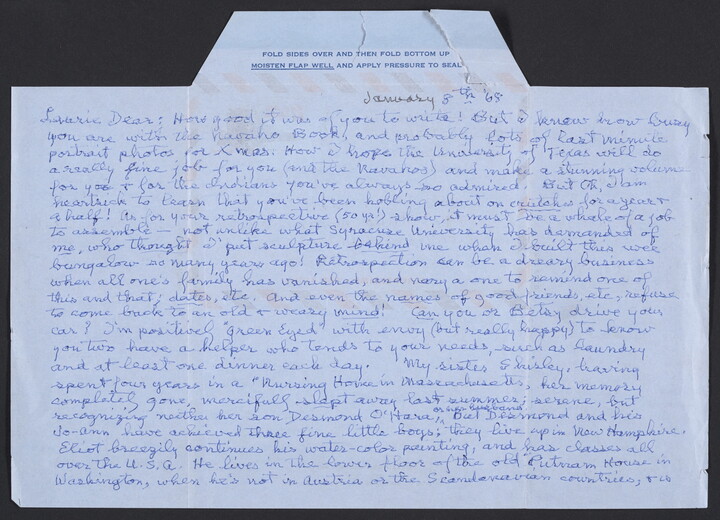 FOLD SIDES OVER AND THEN FOLD BOTTOM UP
MOISTEN FLAP WELL AND APPLY PRESSURE TO SEAL
January 8th '68
Laurie Dear; How good it was of you to write! But I know how busy
you are with the Navaho Book, and probably lots of last minute
portrait photos for Xmas. How I hope the University of Texas will do
a really fine job for you (and the Navahos) and make a stunning volume
for you & for the Indians you've always so admired. But Oh, I am
heartsick to learn that you've been hobling about on crutches for a year &
a half! As for your retrospective (50 yrs!) show, it must be a whale of a job
to assemble — not unlike what Syracuse University has demanded of
me, who thought I'd put sculpture behind me when I built this wee
bungalow so many years ago! Retrospection can be a dreary business
when all one's family has vanished, and nary a one to remind one of
this and that; dates, etc. And even the names of good friends, etc, refuse
to come back to an old & weary mind! Can you or Betsy drive your
car? I'm positively "Green Eyed" with envy (but really happy) to know
you two have a helper who tends to your needs, such as laundry
and at least one dinner each day. My sister Shirley, having
spent four years in a "Nursing Home in Massachusetts, her memory
completely gone, mercifully slept away last summer; serene, but
recognizing neither her son Desmond O'Hara, or her husband. But Desmond and his
Jo-ann have achieved three fine little boys; they live up in New Hampshire.
Eliot breezily continues his water-color painting, and has classes all
over the U.S.A. He lives in the lower floor of the old Putnam House in
Washington, when he's not in Austria or the Scandanavian countries, & is